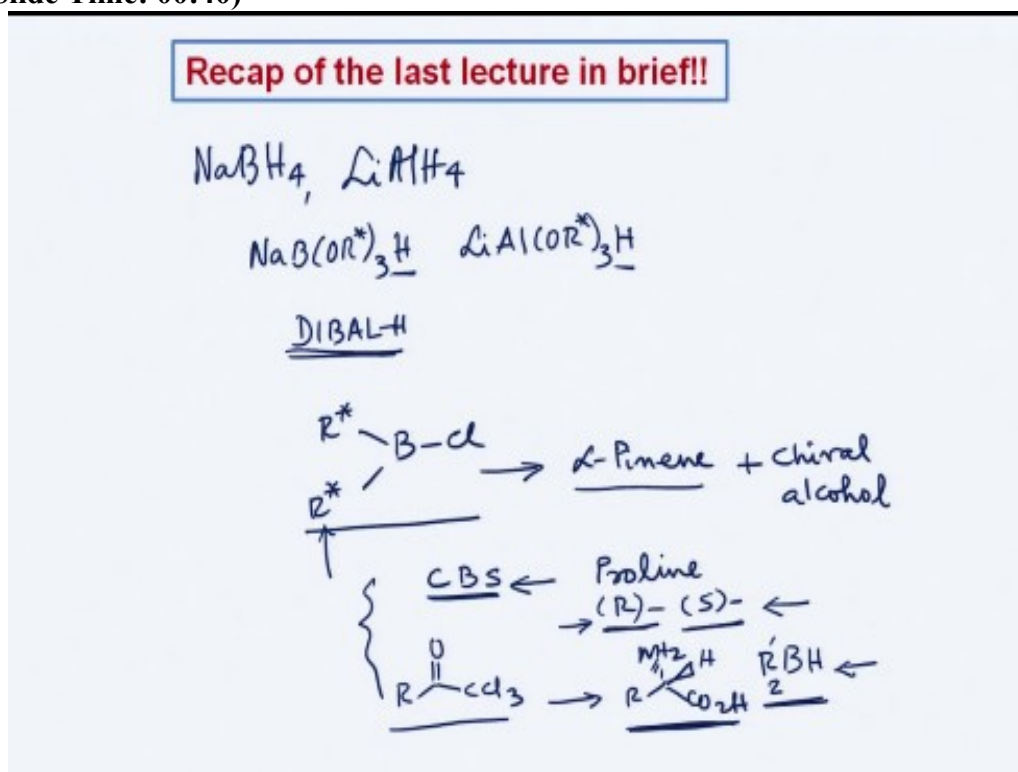 Recap of the last lecture in brief!!
NaBH4, LiAlH4
NaB(OR*)3H LiAl(OR*)3H
DIBAL-H
R*
B-Cl → α-Pinene + Chiral
R* alcohol
CBS ← Proline
→ (R)- (S)- ←
O NH2 H R'BH ←
R CCl3 → R CO2H 2